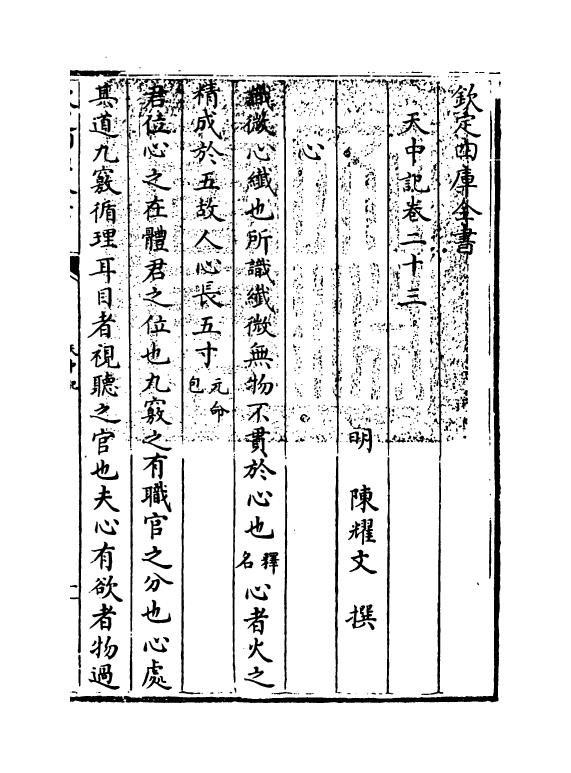 欽定四庫全書
天中記卷二十三
明 陳耀文 撰
心
識微心纖也所識纖微無物不貫於心也釋名心者火之
精成於五故人心長五寸元命包
君位心之在體君之位也九竅之有職官之分也心處
其道九竅循理耳目者視聽之官也夫心有欲者物過
天中記